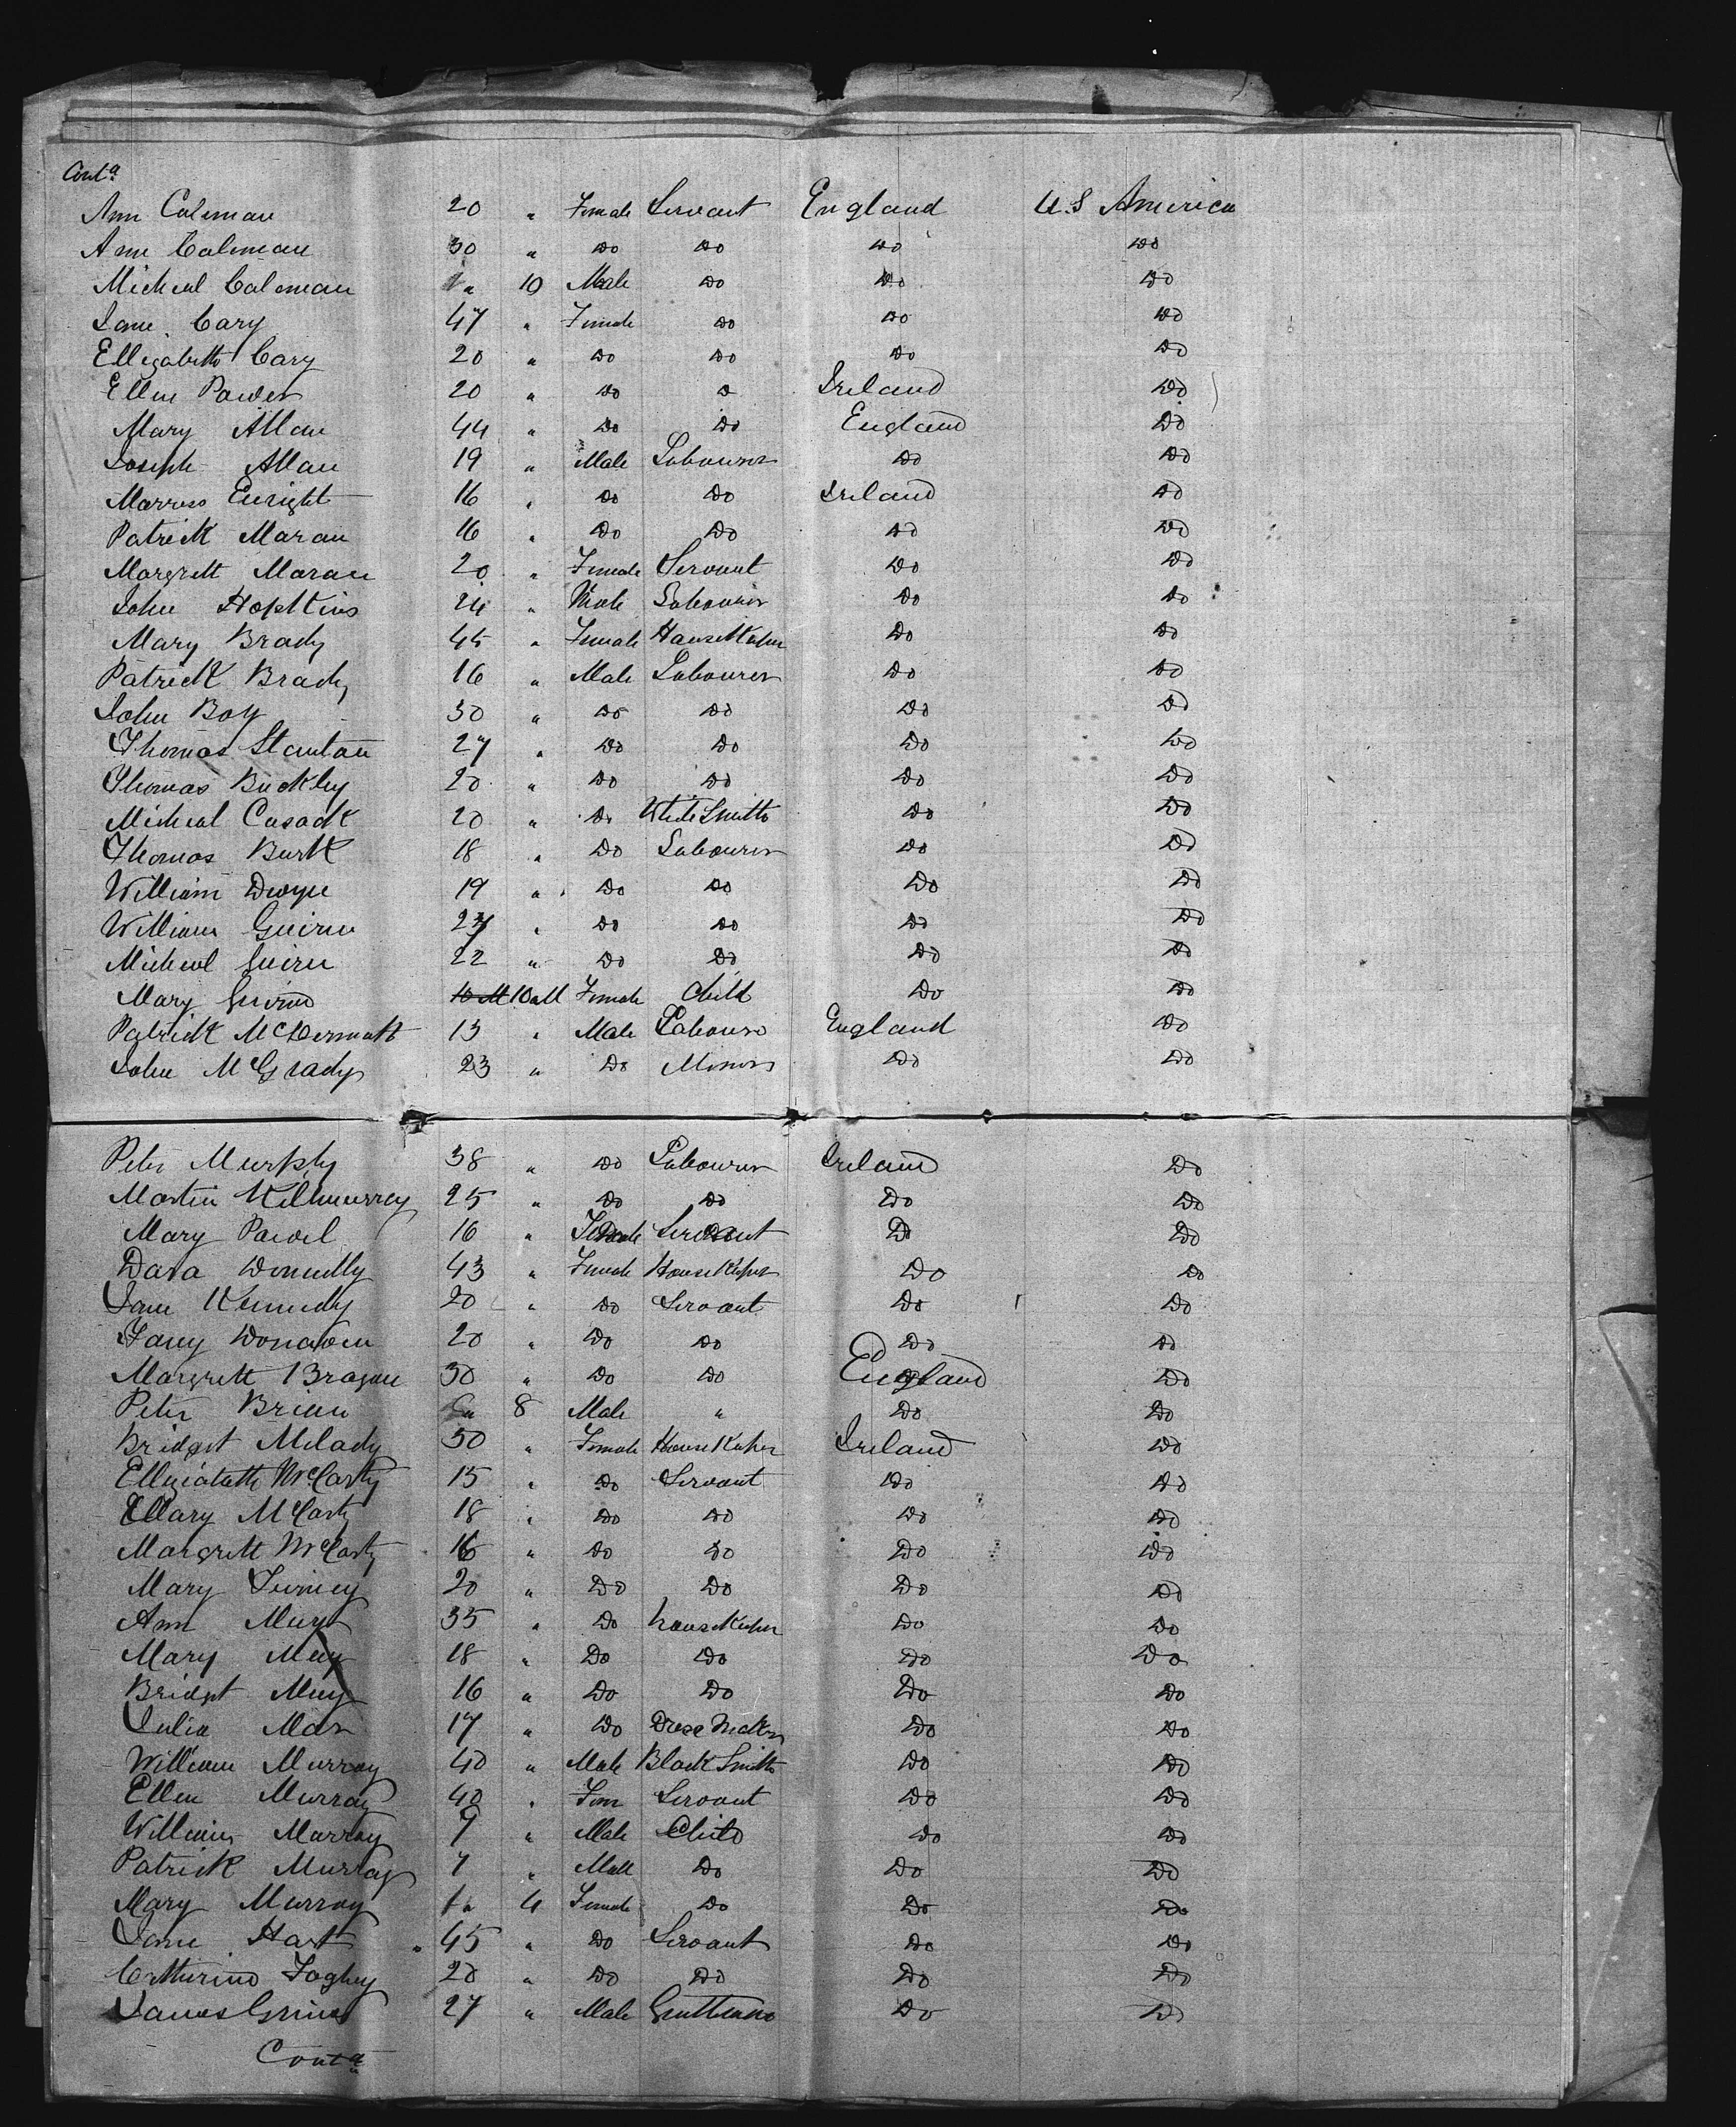 Contd
Ann Coleman 20 " Female Servant England U.S America
Ann Coleman 30 " Do Do Do Do
Micheal Coleman " 10 Male Do Do Do
Jane Cary 47 " Female Do Do Do
Ellizabeth Cary 20 " Do Do Do Do
Ellen Power 20 " Do Do Ireland Do
Mary Allan 44 " Do Do England Do
Joseph Allan 19 " Male Labourer Do Do
Enright 16 " Do Do Ireland Do
Patrick Maran 16 " Do Do Do Do
Margrett Maran 20 " Female Servant Do Do
John Hopkins 24 " Male Labourer Do Do
Mary Brady 45 " Female HouseKeper Do Do
Patrick Brady 16 " Male Labourer Do Do
John Boy 30 " Do Do Do Do
Thomas Stantan 27 " Do Do Do Do
Thomas Buckley 20 " Do Do Do Do
Micheal Cusack 20 " Do White Smith Do Do
Thomas Burk 18 " Do Labourer Do Do
William Dwyre 19 " Do Do Do Do
William " Do Do Do Do
Micheal 22 " Do Do Do Do
Mary 10 M 10 M Female Child Do Do
Patrick McDermott 13 " Male Labourer England Do
John McGrady 23 " Do Minor Do Do
Peter Murphy 38 " Do Labourer Ireland Do
Martin Killmurrey 25 " Do Do Do Do
Mary Powel 16 " Female Servant Do Do
Dara Donnelly 43 " Female HouseKeper Do Do
Jane Kennedy 20 " Do Servant Do Do
Fany Donavan 20 " Do Do Do Do
Margrett Bragan 30 " Do Do England Do
Peter Brien " 8 Male " Do Do
Bridget Melady 50 " Female HouseKeper Ireland Do
McCarty 15 " Do Servant Do Do
Mary McCarty 18 " Do Do Do Do
Margrett McCarty 16 " Do Do Do Do
Mary 20 " Do Do Do Do
Ann 35 " Do houseKeper Do Do
Mary 18 " Do Do Do Do
Bridget 16 " Do Do Do Do
Julia 17 " Do Dress Maker Do Do
William Murray 40 " Male Black Smith Do Do
Ellen Murray 40 " Fem Servant Do Do
William Murray 9 " Male Child Do Do
Patrick Murray 7 " Male Do Do Do
Mary Murray 1 " 4 Female Do Do Do
Jane Hart 45 " Do Servant Do Do
Catherine Foghey 20 " Do Do Do Do
James 27 " Male Do Do
Contd